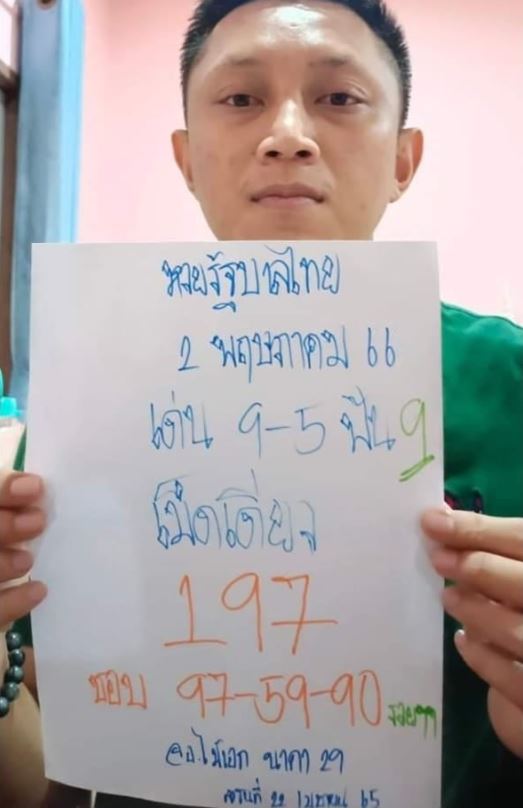 หวยรัฐบาลไทย
2 พฤษภาคม 66
เด่น 9-5 ฟัน 9
เม็ดเดียว
197
ชอบ 97-59-90 รวยๆๆ
@อ.ไม้เอก นาคา 29
22 เมษายน 65